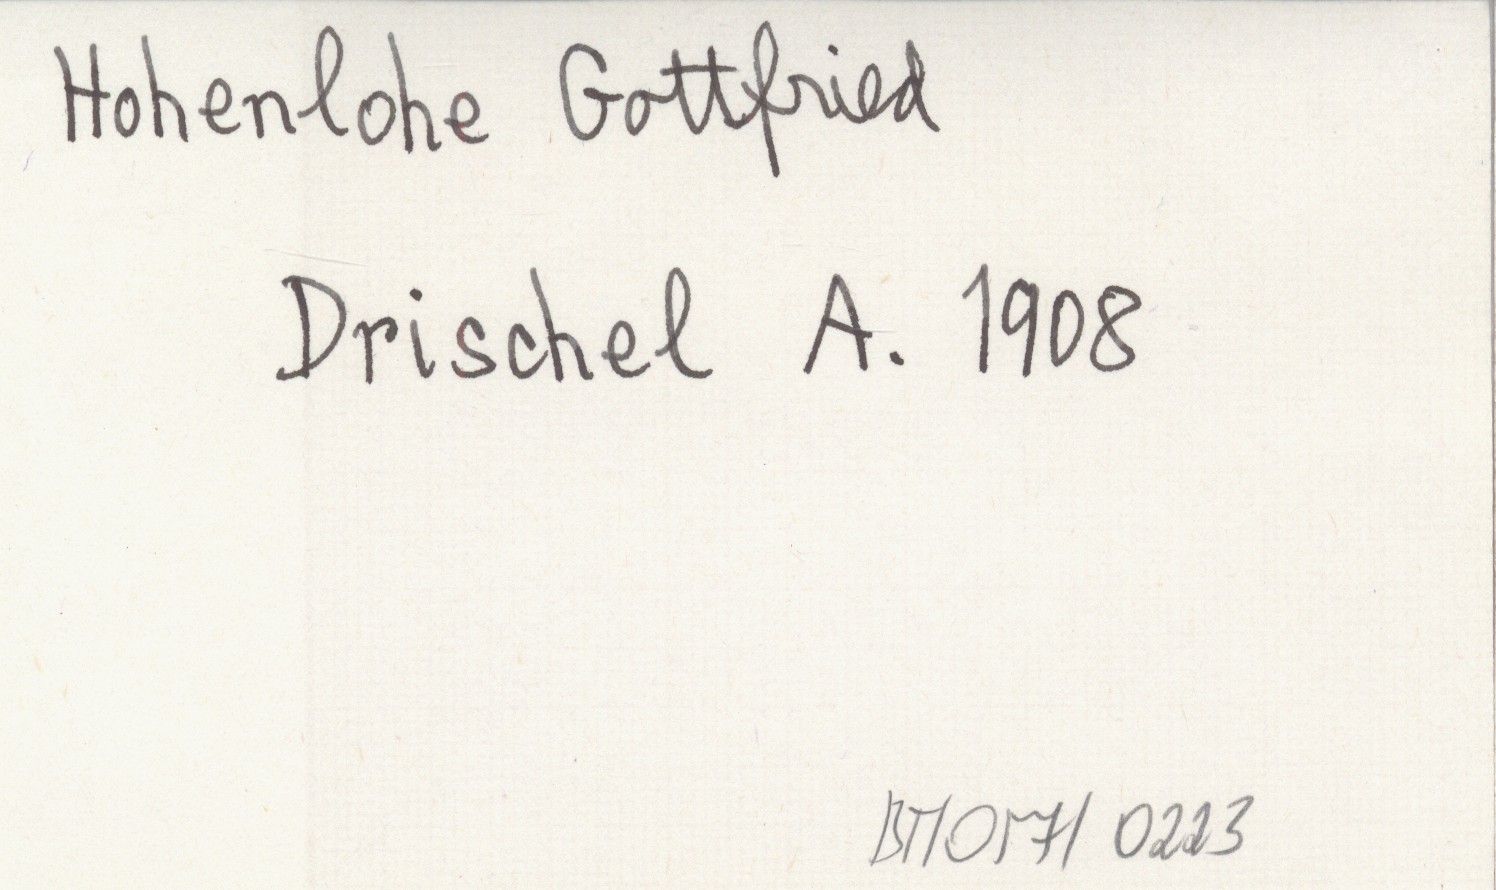 Hohenlohe Gottfried
Drischel A. 1908
BT/057/ 0223